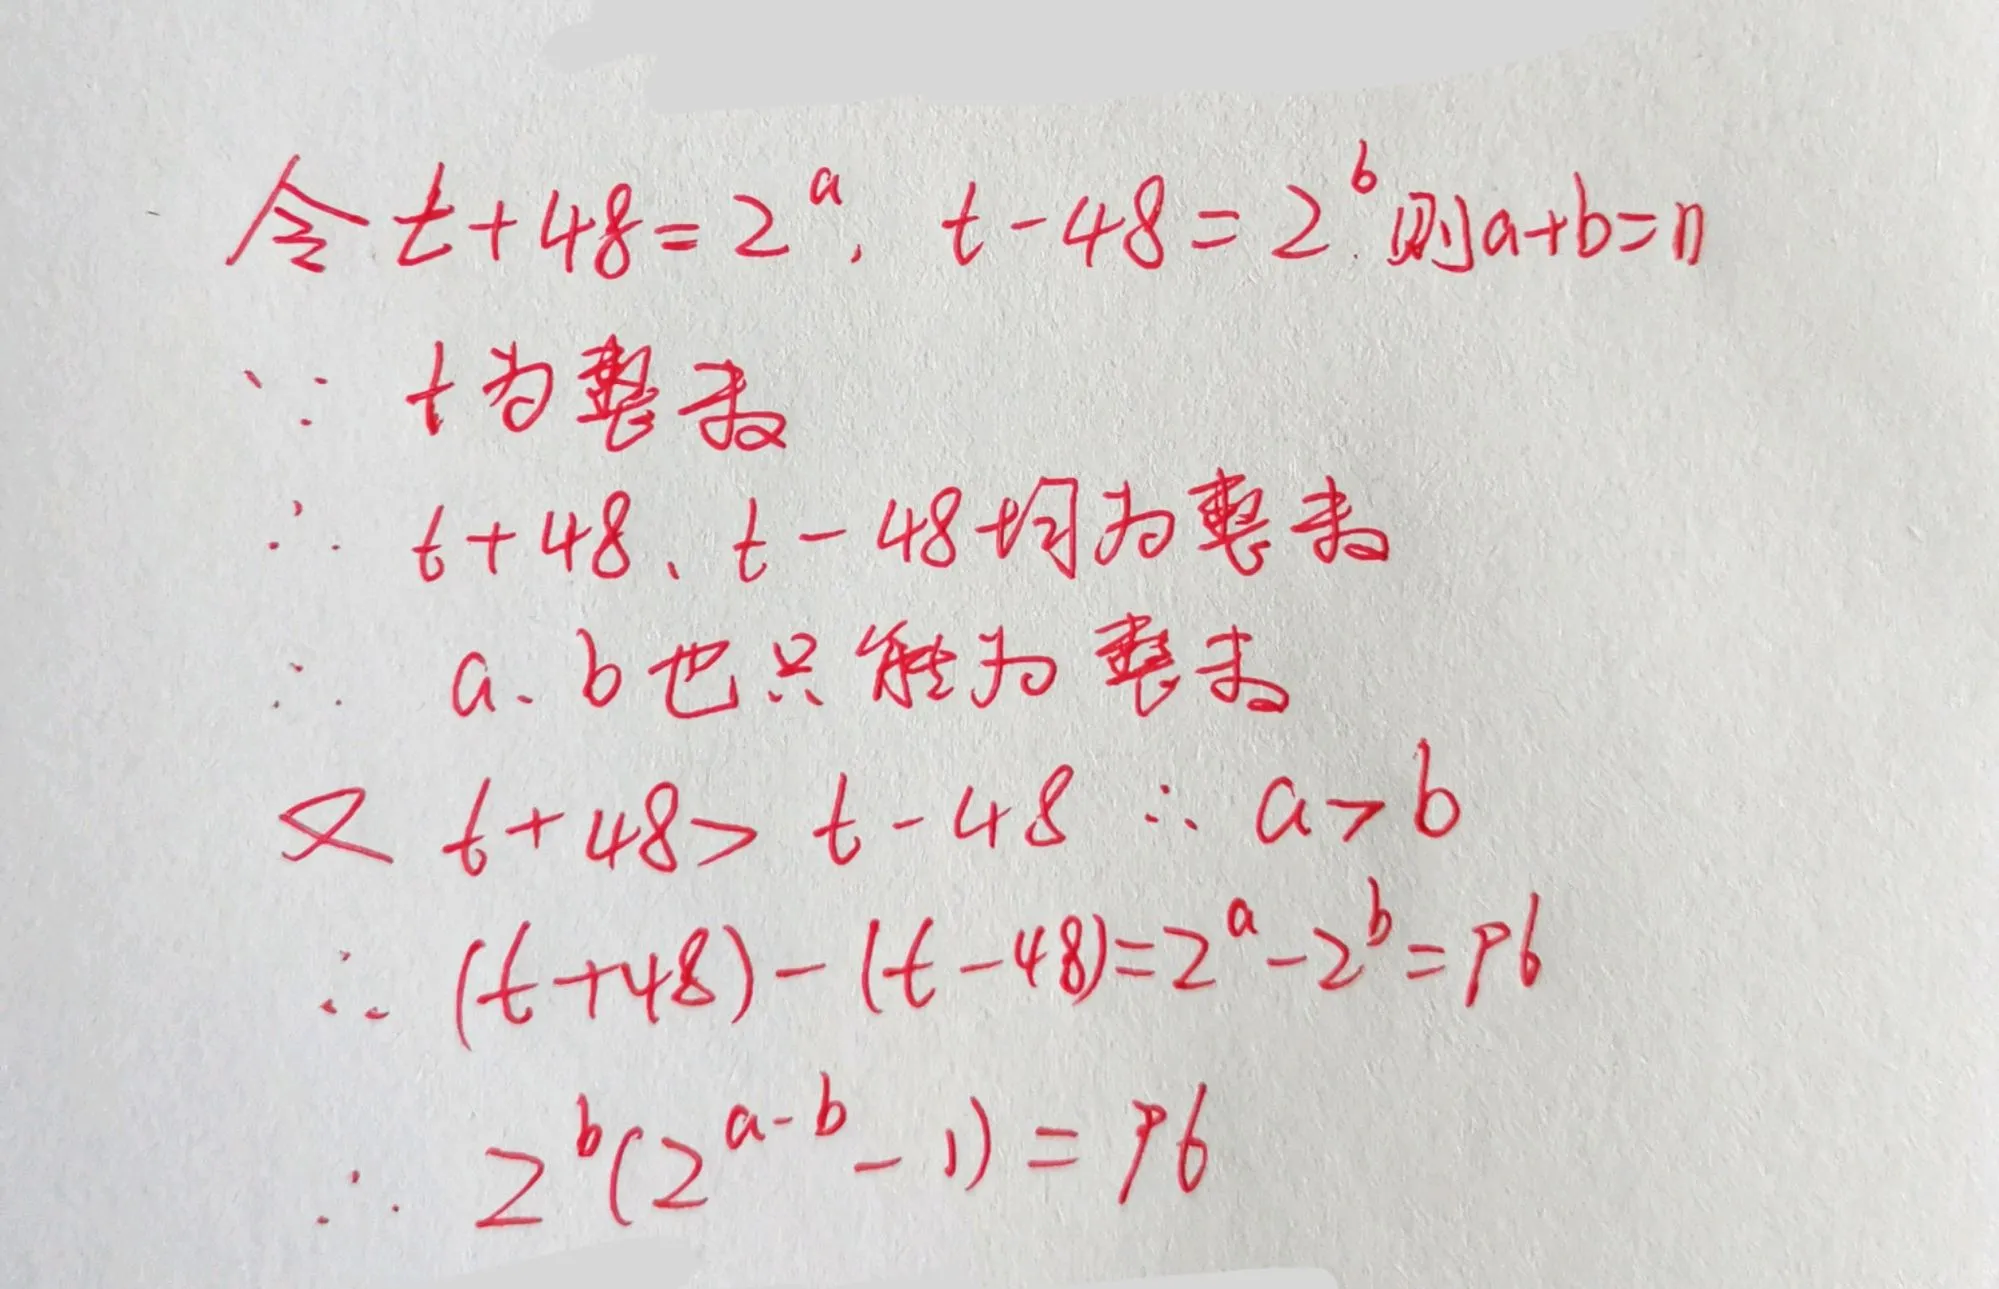 令 t+48=2^a, t-48=2^b 则a+b=n
∵ t为整数
∴ t+48、t-48均为整数
∴ a、b也只能为整数
又 t+48> t-48 ∴ a>b
∴ (t+48)-(t-48)=2^a-2^b=96
∴ 2^b(2^{a-b}-1)=96